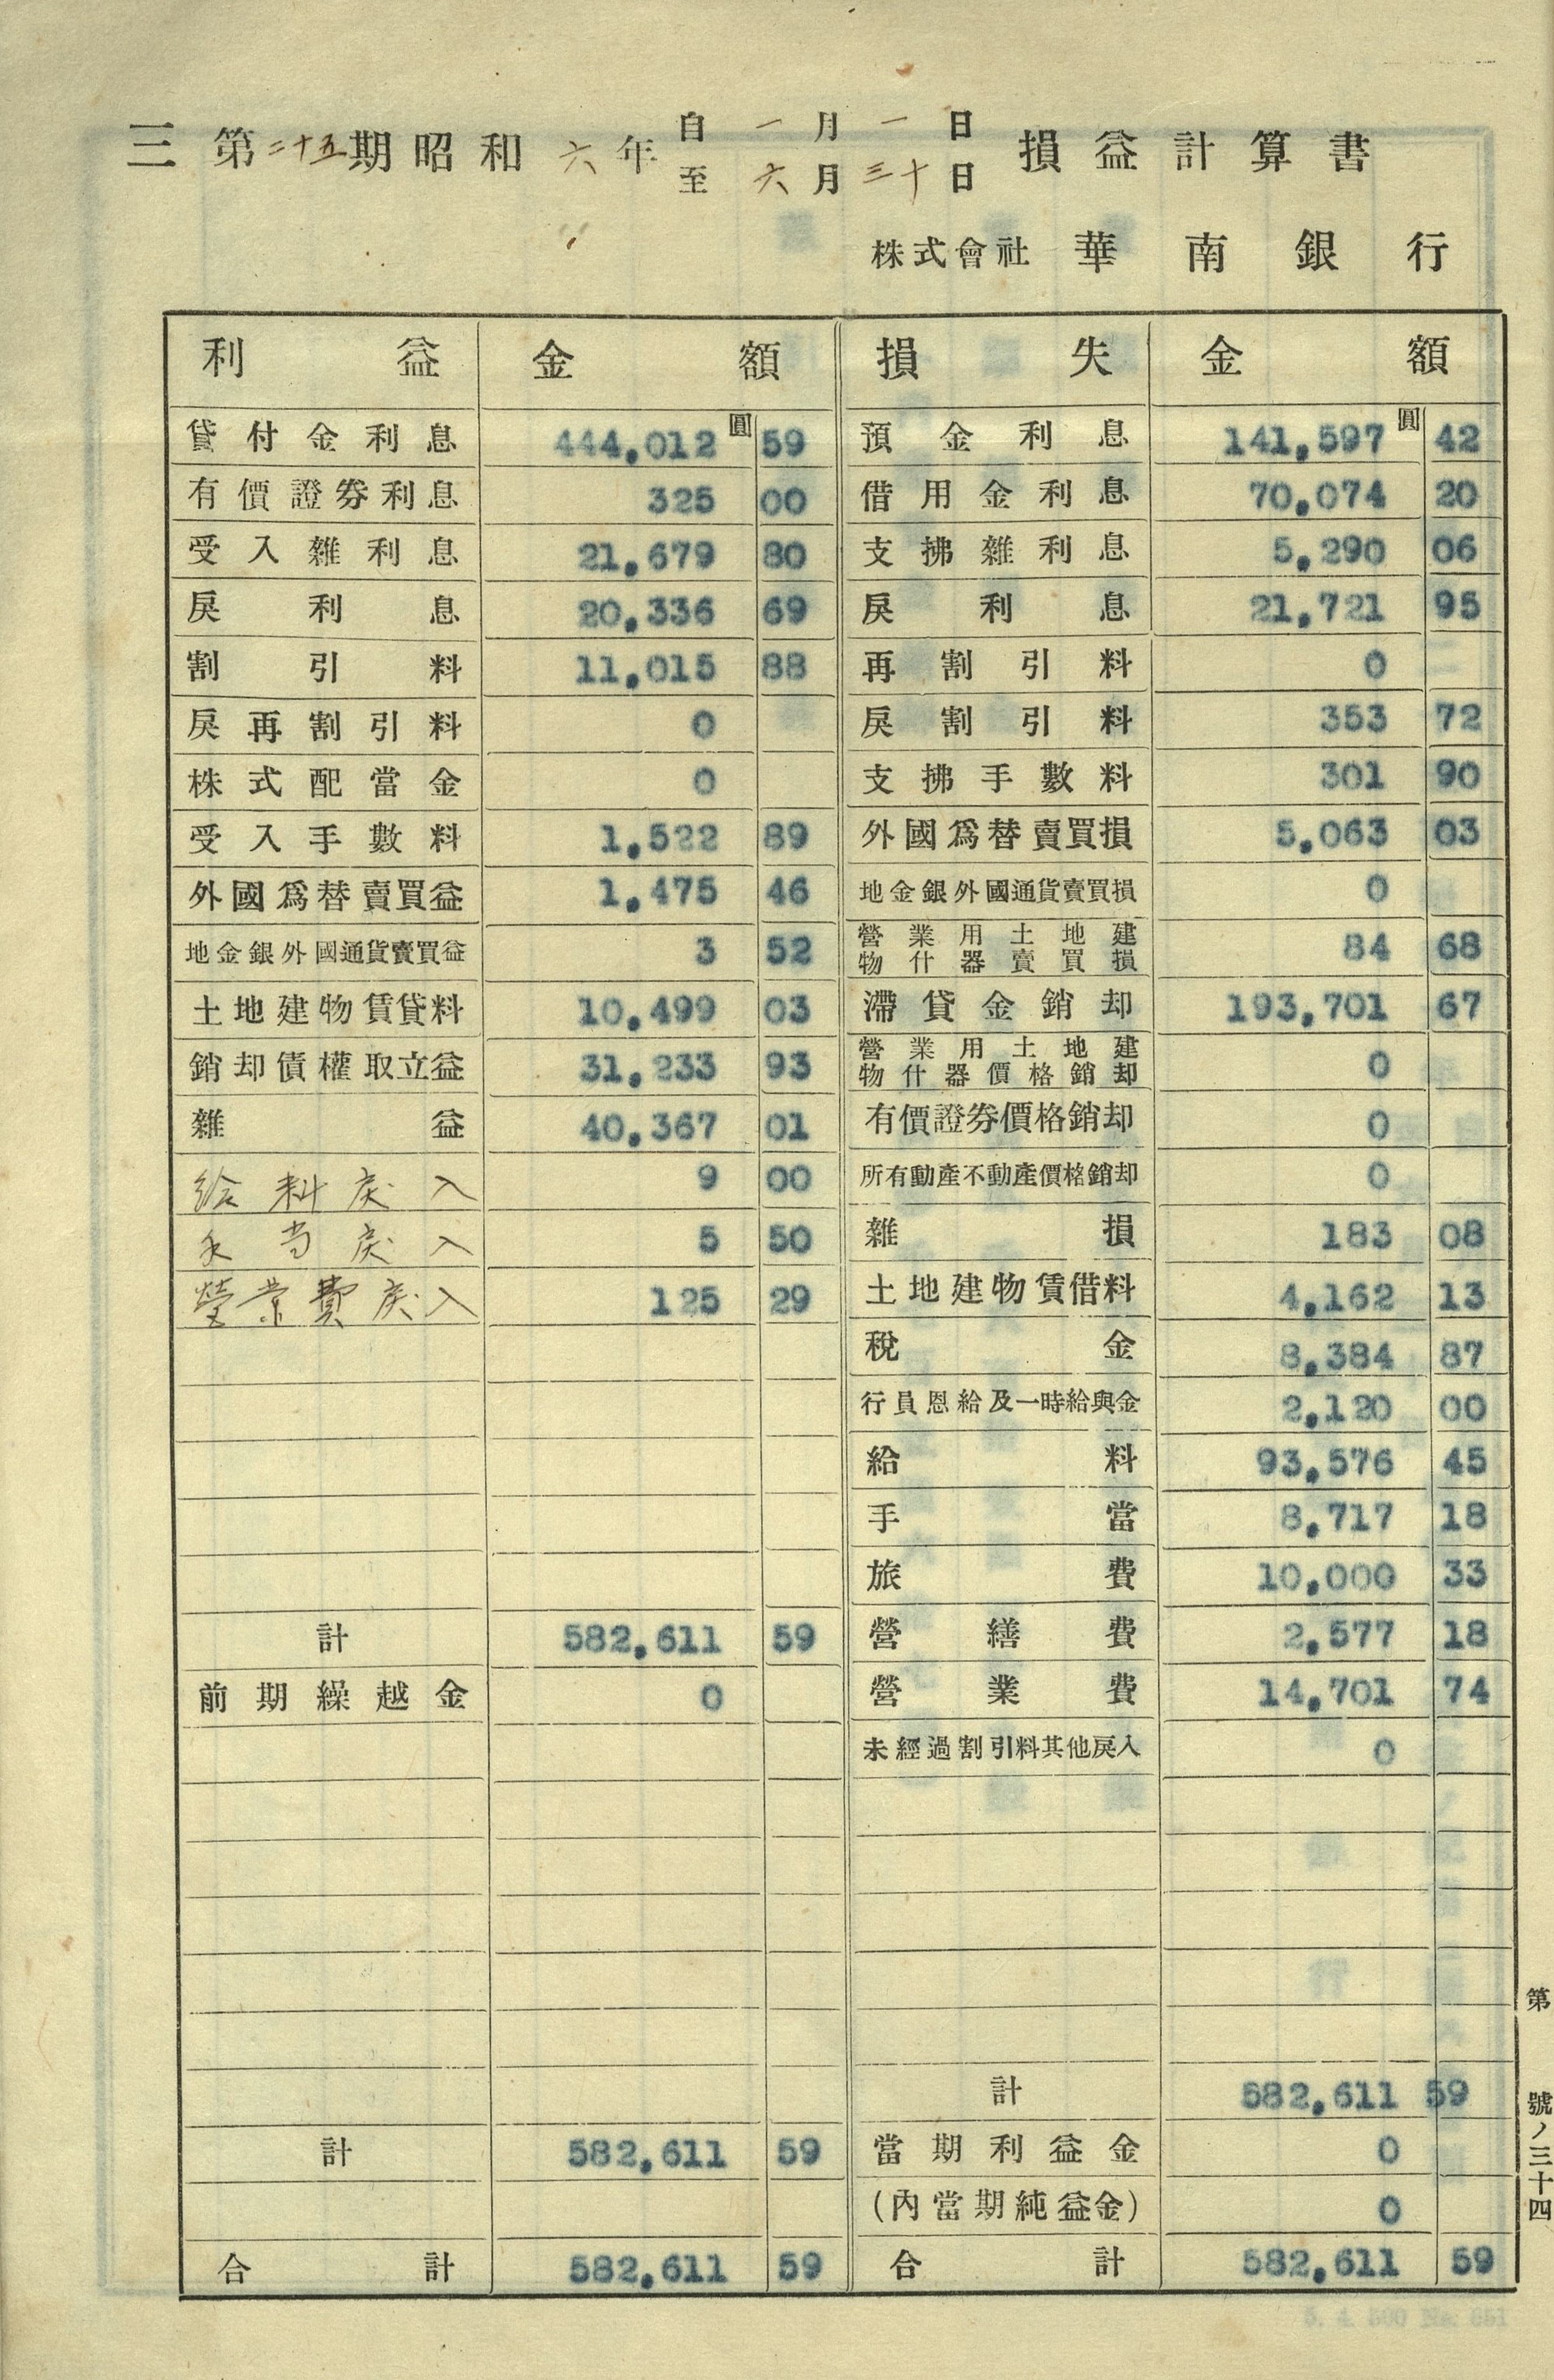 三 第二十五期昭和六年 自一月一日 至六月三十日 損益計算書
株式會社 華南銀行
利益 金額 損失 金額
貸付金利息 444,012圓 59 預金利息 141,597圓 42
有價證券利息 325 00 借用金利息 70,074 20
受入雜利息 21,679 80 支拂雜利息 5,290 06
戾利息 20,336 69 戾利息 21,721 95
割引料 11,015 88 再割引料 0
戾再割引料 0 戾割引料 353 72
株式配當金 0 支拂手數料 301 90
受入手數料 1,522 89 外國爲替賣買損 5,063 03
外國爲替賣買益 1,475 46 地金銀外國通貨賣買損 0
地金銀外國通貨賣買益 3 52 營業用土地建物什器賣買損 84 68
土地建物賃貸料 10,499 03 滯貸金銷却 193,701 67
銷却債權取立益 31,233 93 營業用土地建物什器價格銷却 0
雜益 40,367 01 有價證券價格銷却 0
給料戾入 9 00 所有動產不動產價格銷却 0
手当戾入 5 50 雜損 183 08
營業費戾入 125 29 土地建物賃借料 4,162 13
稅金 8,384 87
行員恩給及一時給與金 2,120 00
給料 93,576 45
手當 8,717 18
旅費 10,000 33
計 582,611 59 營繕費 2,577 18
前期繰越金 0 營業費 14,701 74
未經過割引料其他戾入 0
計 582,611 59
計 582,611 59 當期利益金 0
(內當期純益金) 0
合計 582,611 59 合計 582,611 59
第 號ノ三十四
5. 4. 500 No. 651